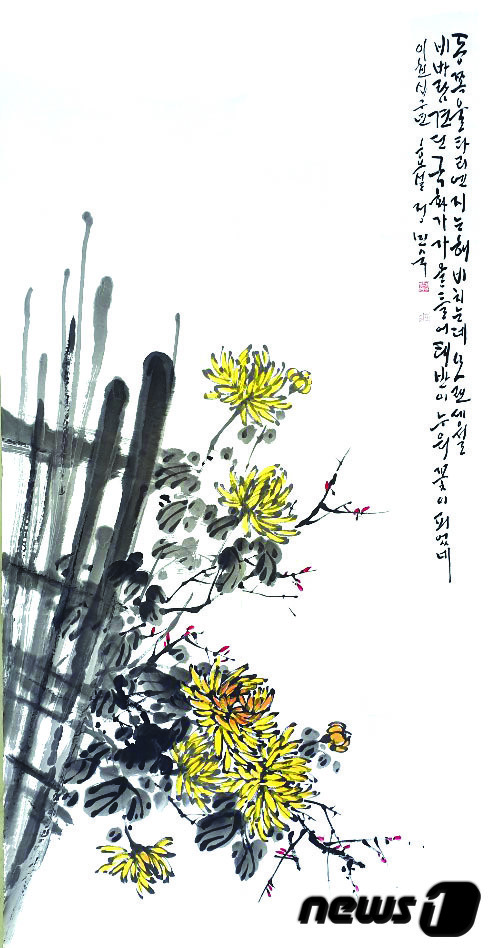 동쪽 울타리엔 지는 해 비치는데 오랜 세월
비바람 견딘 국화가 가을 들어 태반이 누워 꽃이 피었네
이천십구년 효설 정민숙
news1